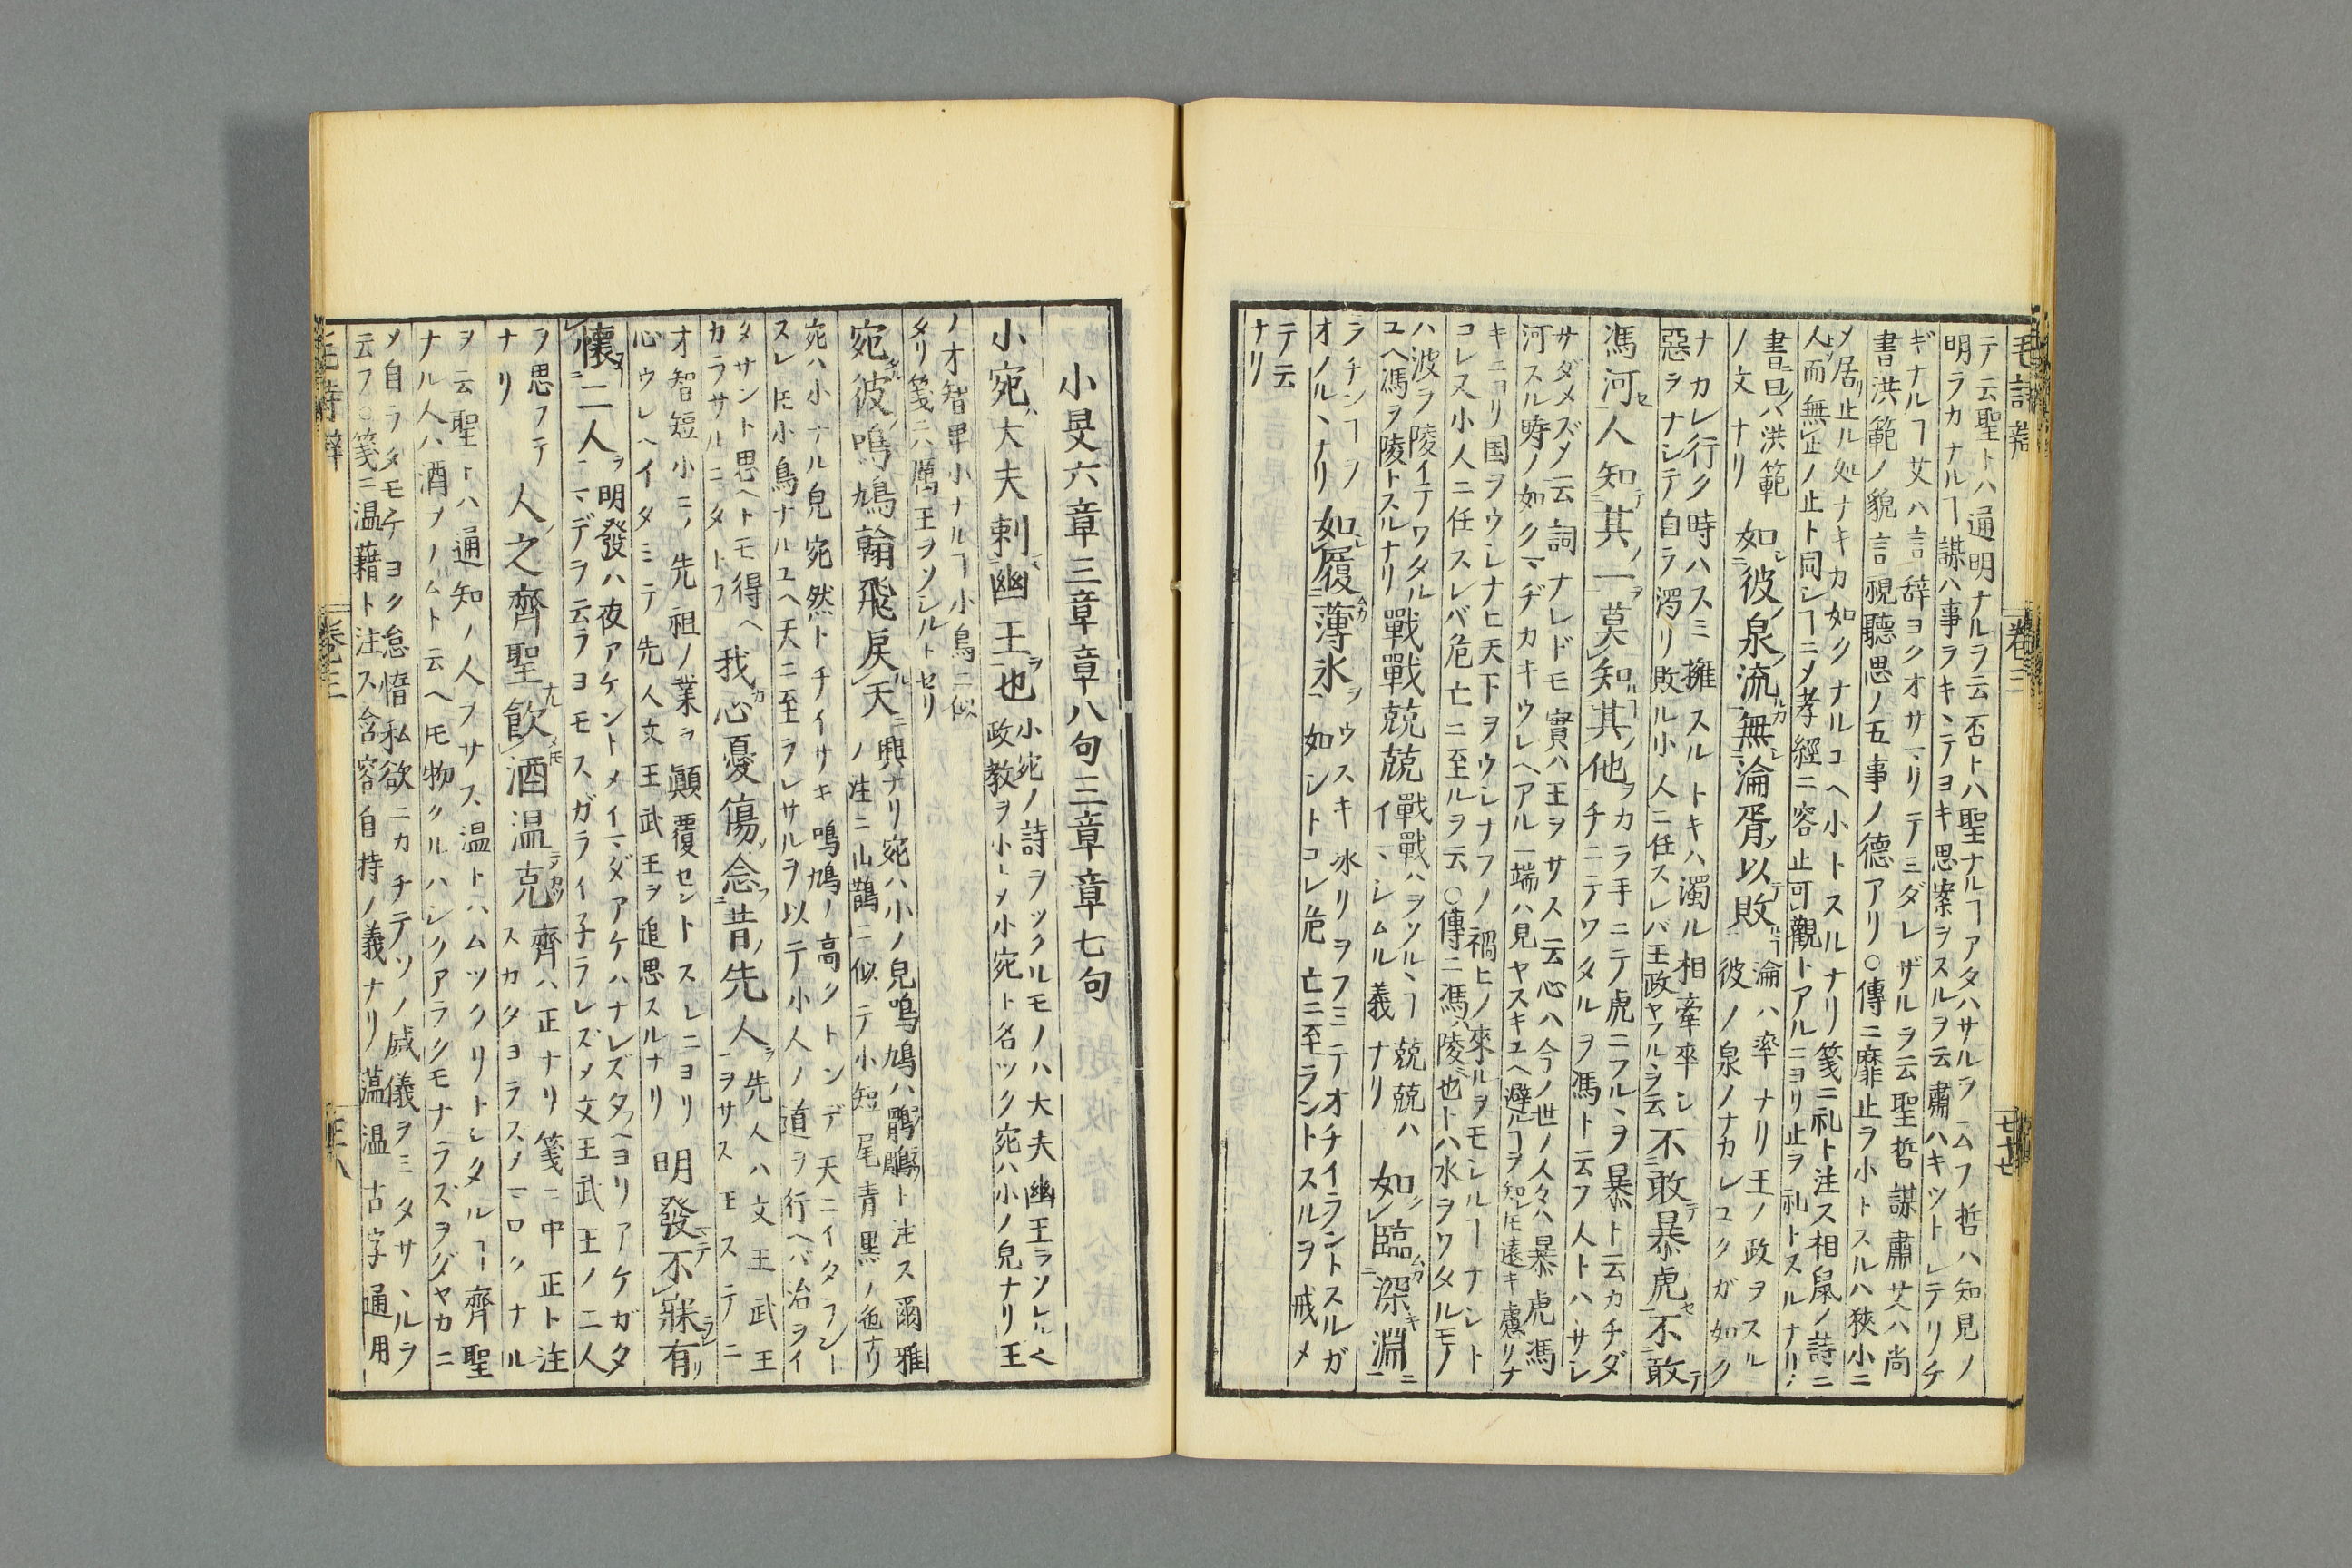 テ云聖トハ通明ナルヲ云否トハ聖ナルヿアタハサルヲ云フ哲ハ知見ノ
明ラカナルヿ謀ハ事ラキンテヨキ思案ヲスルヲ云肅ハキツトレテリチ
ギナルヿ艾ハ言辞ヨクオサマリテミダレザルヲ云聖哲謀肅艾ハ尚
書洪範ノ貌言視聽思ノ五事ノ德アリ○傳ニ靡止ヲ小トスルハ狹小ニ
メ居リ止ル処ナキカ如クナルコヘ小トスルナリ箋ニ礼ト注ス相鼠ノ詩ニ
人而無止ノ止ト同シヿニメ孝經ニ容止可觀トアルニヨリ止ヲ礼トスルナリ
書曰ハ洪範
ノ文ナリ
如彼泉流無淪胥以敗
淪ハ率ナリ王ノ政ヲスル
彼ノ泉ノナカレユクガ如ク
ナカレ行ク時ハスミ擁スルトキハ濁ル相牽率シ
惡ヲナシテ自ラ濁リ敗ル小人ニ任スレバ王政ヤフルヽヲ云
不敢暴虎不敢
馮河人知其一莫知其他
カラ手ニテ虎ニフルヽヲ暴ト云カチダ
チニテワタルヲ馮ト云フ人トハサレ
サダメズメ云詞ナレドモ實ハ王ヲサス云心ハ今ノ世ノ人々ハ暴虎馮
河スル時ノ如クマヂカキウレヘアル一端ハ見ヤスキユヘ避ルヿヲ知レ𪜈遠キ慮リナ
キニヨリ国ヲウシナヒ天下ヲウシナフノ禍ヒノ來ルヲモシルヿナシト
コレ又小人ニ任スレバ危亡ニ至ルヲ云○傳ニ馮ハ陵也トハ水ヲワタルモノ
ハ波ヲ陵イテワタル
ユヘ馮ヲ陵トスルナリ
戰戰兢兢
戰戰ハヲソルヽヿ兢兢ハ
イマシムル義ナリ
如臨深淵
ヲチンヿヲ
オソルヽナリ
如履薄氷
ウスキ氷リヲフミテオチイラントスルガ
如シトコレ危亡ニ至ラントスルヲ戒メ
テ云
ナリ
小旻六章三章章八句三章章七句
小宛大夫刺幽王也
小宛ノ詩ヲツクルモノハ大夫幽王ヲソシルノ
政教ヲ小シメ小宛ト名ツク宛ハ小ノ皃ナリ王
ノ才智卑小ナルヿ小鳥ニ似
タリ箋ニハ厲王ヲソシルトセリ
宛彼鳴鳩翰飛戾天
興ナリ宛ハ小ノ皃鳴鳩ハ鶻鵰ト注ス爾雅
ノ注ニ山鵲ニ似テ小短尾青黒ノ色ナリ
宛ハ小ナル皃宛然トチイサキ鳴鳩ノ高クトンデ天ニイタランヿ
スレ𪜈小鳥ナルユヘ天ニ至ラレサルヲ以テ小人ノ道ヲ行ヘバ治ヲイ
タサント思ヘトモ得ヘ
カラサルニタトフ
我心憂傷念昔先人
先人ハ文王武王
ヲサスモステニ
才智短小ニメ先祖ノ業ヲ顚覆セントスレニヨリ
心ウレヘイタミテ先人文王武王ヲ追思スルナリ
明發不寐有
懷二人
明發ハ夜アケントメイマダアケハナレズ夕ヘヨリアケガタ
マデヲ云ヲヨモスガライ子ラレズメ文王武王ノ二人
ヲ思フテ
ナリ
人之齊聖飮酒温克
齊ハ正ナリ箋ニ中正ト注
スカタヨラスメマロクナル
ヲ云聖トハ通知ノ人ヲサス温トハムツクリトシタルヿ齊聖
ナル人ハ酒ヲノムト云ヘ𪜈物クルハシクアラクモナラズヲダヤカニ
メ自ラタモチヨク怠惰私欲ニカチテソノ威儀ヲミタサヽルヲ
云フ○箋ニ温藉ト注ス含容自持ノ義ナリ薀温古字通用
卷三
七十七
卷三